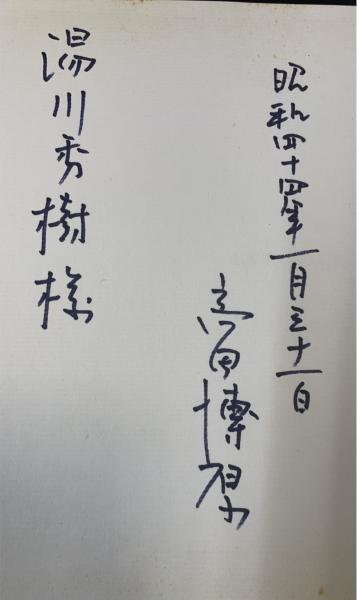 昭和四十四年一月三十一日
高田博厚
湯川秀樹様